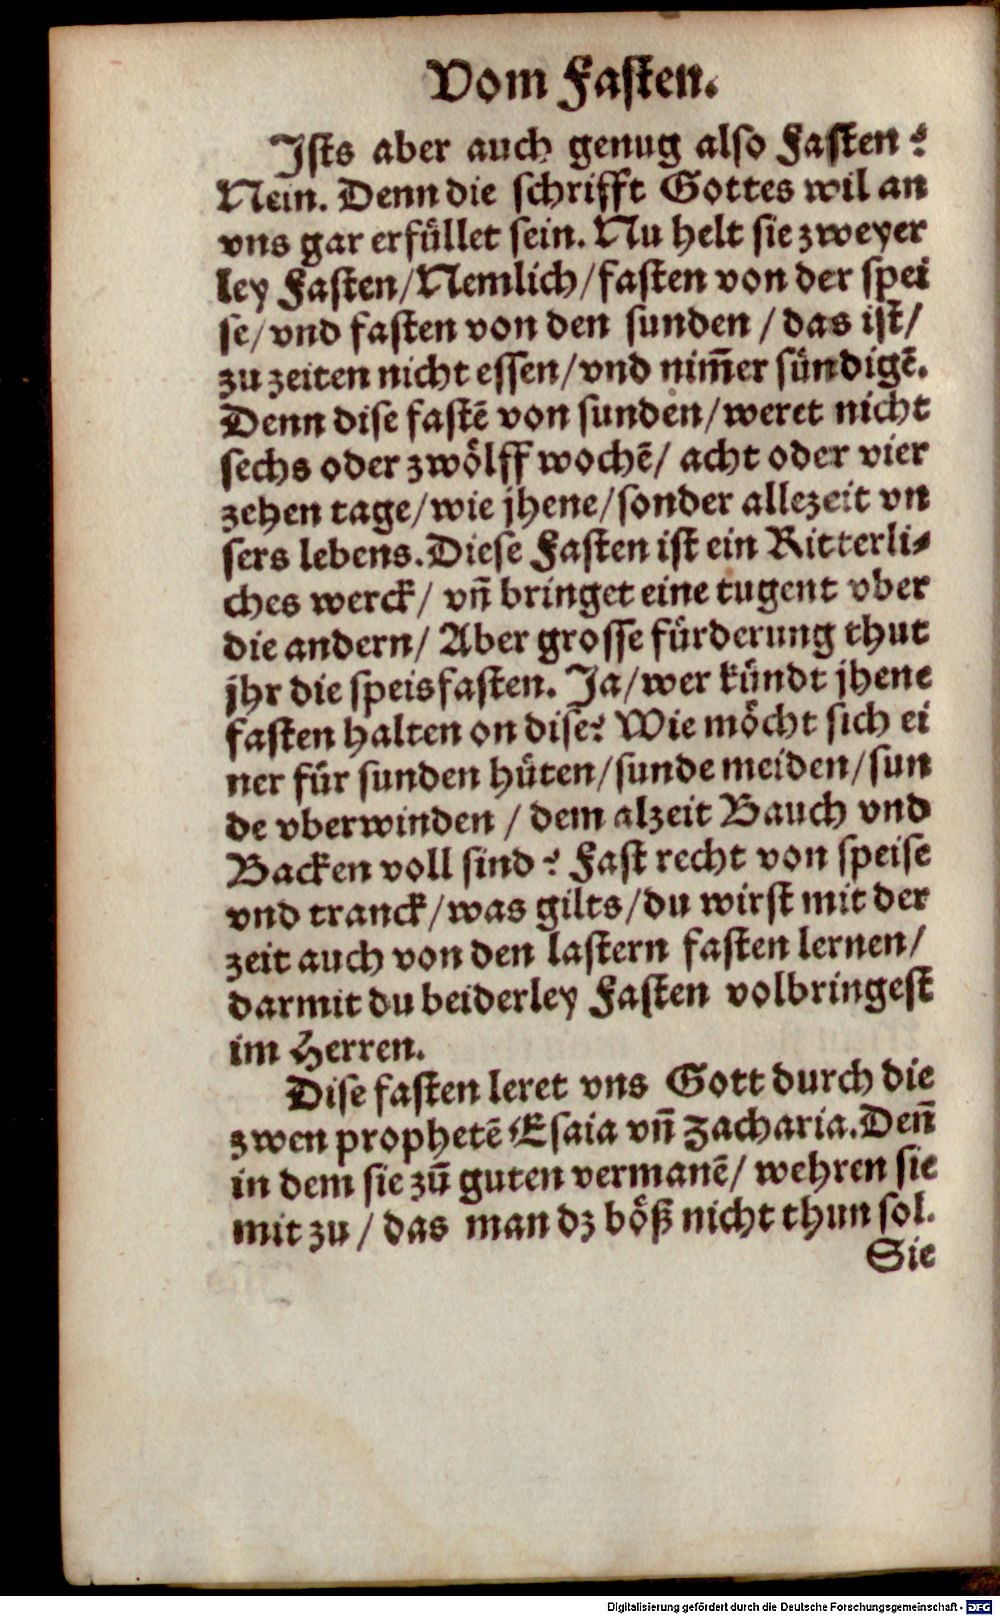 Vom Fasten.
Ists aber auch genug also Fasten?
Nein. Denn die schrifft Gottes wil an
vns gar erfüllet sein. Nu helt sie zweyer
ley Fasten/Nemlich/fasten von der spei
se/vnd fasten von den sunden / das ist/
zu zeiten nicht essen/vnd nim̄er sündigē.
Denn dise fastē von sunden/weret nicht
sechs oder zwölff wochē/ acht oder vier
zehen tage/wie jhene/sonder allezeit vn
sers lebens. Diese Fasten ist ein Ritterli⸗
ches werck/ vn̄ bringet eine tugent vber
die andern/ Aber grosse fürderung thut
jhr die speisfasten. Ja/wer kündt jhene
fasten halten on dise? Wie möcht sich ei
ner für sunden hüten/sunde meiden/sun
de vberwinden / dem alzeit Bauch vnd
Backen voll sind? Fast recht von speise
vnd tranck/was gilts/du wirst mit der
zeit auch von den lastern fasten lernen/
darmit du beiderley Fasten volbringest
im Herren.
Dise fasten leret vns Gott durch die
zwen prophetē Esaia vn̄ Zacharia. Den̄
in dem sie zū guten vermanē/ wehren sie
mit zu / das man dz böß nicht thun sol.
Sie
Digitalisierung gefördert durch die Deutsche Forschungsgemeinschaft - DFG